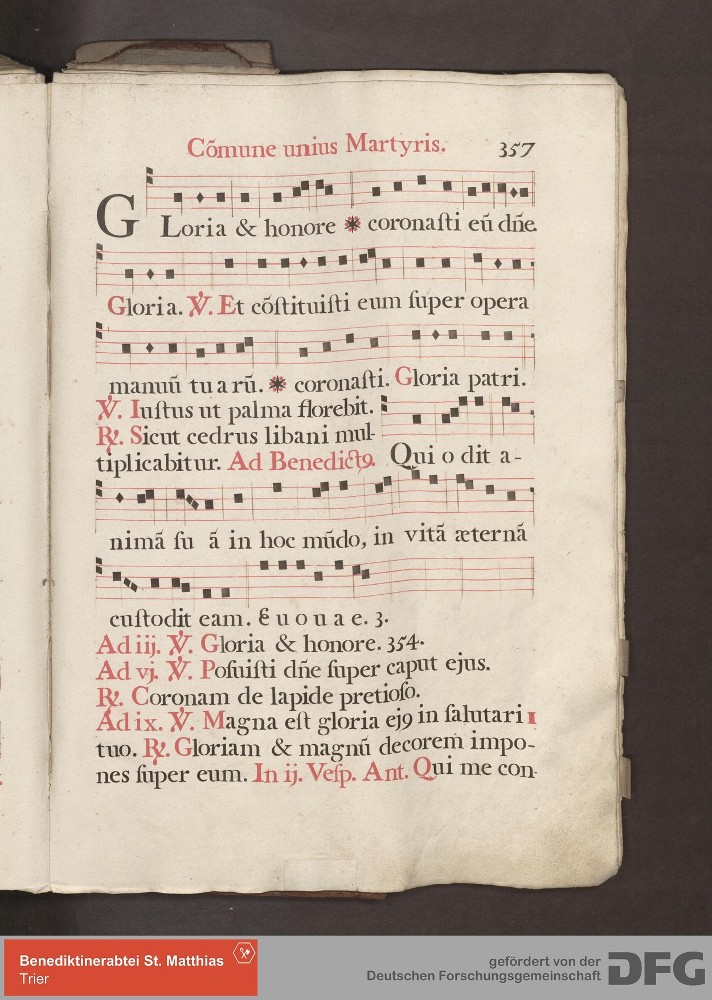 Cõmune unius Martyris. 357
GLoria & honore ✱ coronaſti eũ dñe.
Gloria. ℣. Et cõſtituiſti eum ſuper opera
manuũ tuarũ. ✱ coronaſti. Gloria patri.
℣. Iuſtus ut palma florebit.
℟. Sicut cedrus libani mul-
tiplicabitur. Ad Benedictꝯ. Qui o dit a-
nimã ſu ã in hoc mũdo, in vitã æternã
cuſtodit eam. E u o u a e. 3.
Ad iij. ℣. Gloria & honore. 354.
Ad vj. ℣. Poſuiſti dñe ſuper caput ejus.
℟. Coronam de lapide pretioſo.
Ad ix. ℣. Magna eſt gloria ejꝯ in ſalutari
tuo. ℟. Gloriam & magnũ decorem impo-
nes ſuper eum. In ij. Veſp. Ant. Qui me con-
Benediktinerabtei St. Matthias
Trier
gefördert von der
Deutschen Forschungsgemeinschaft
DFG